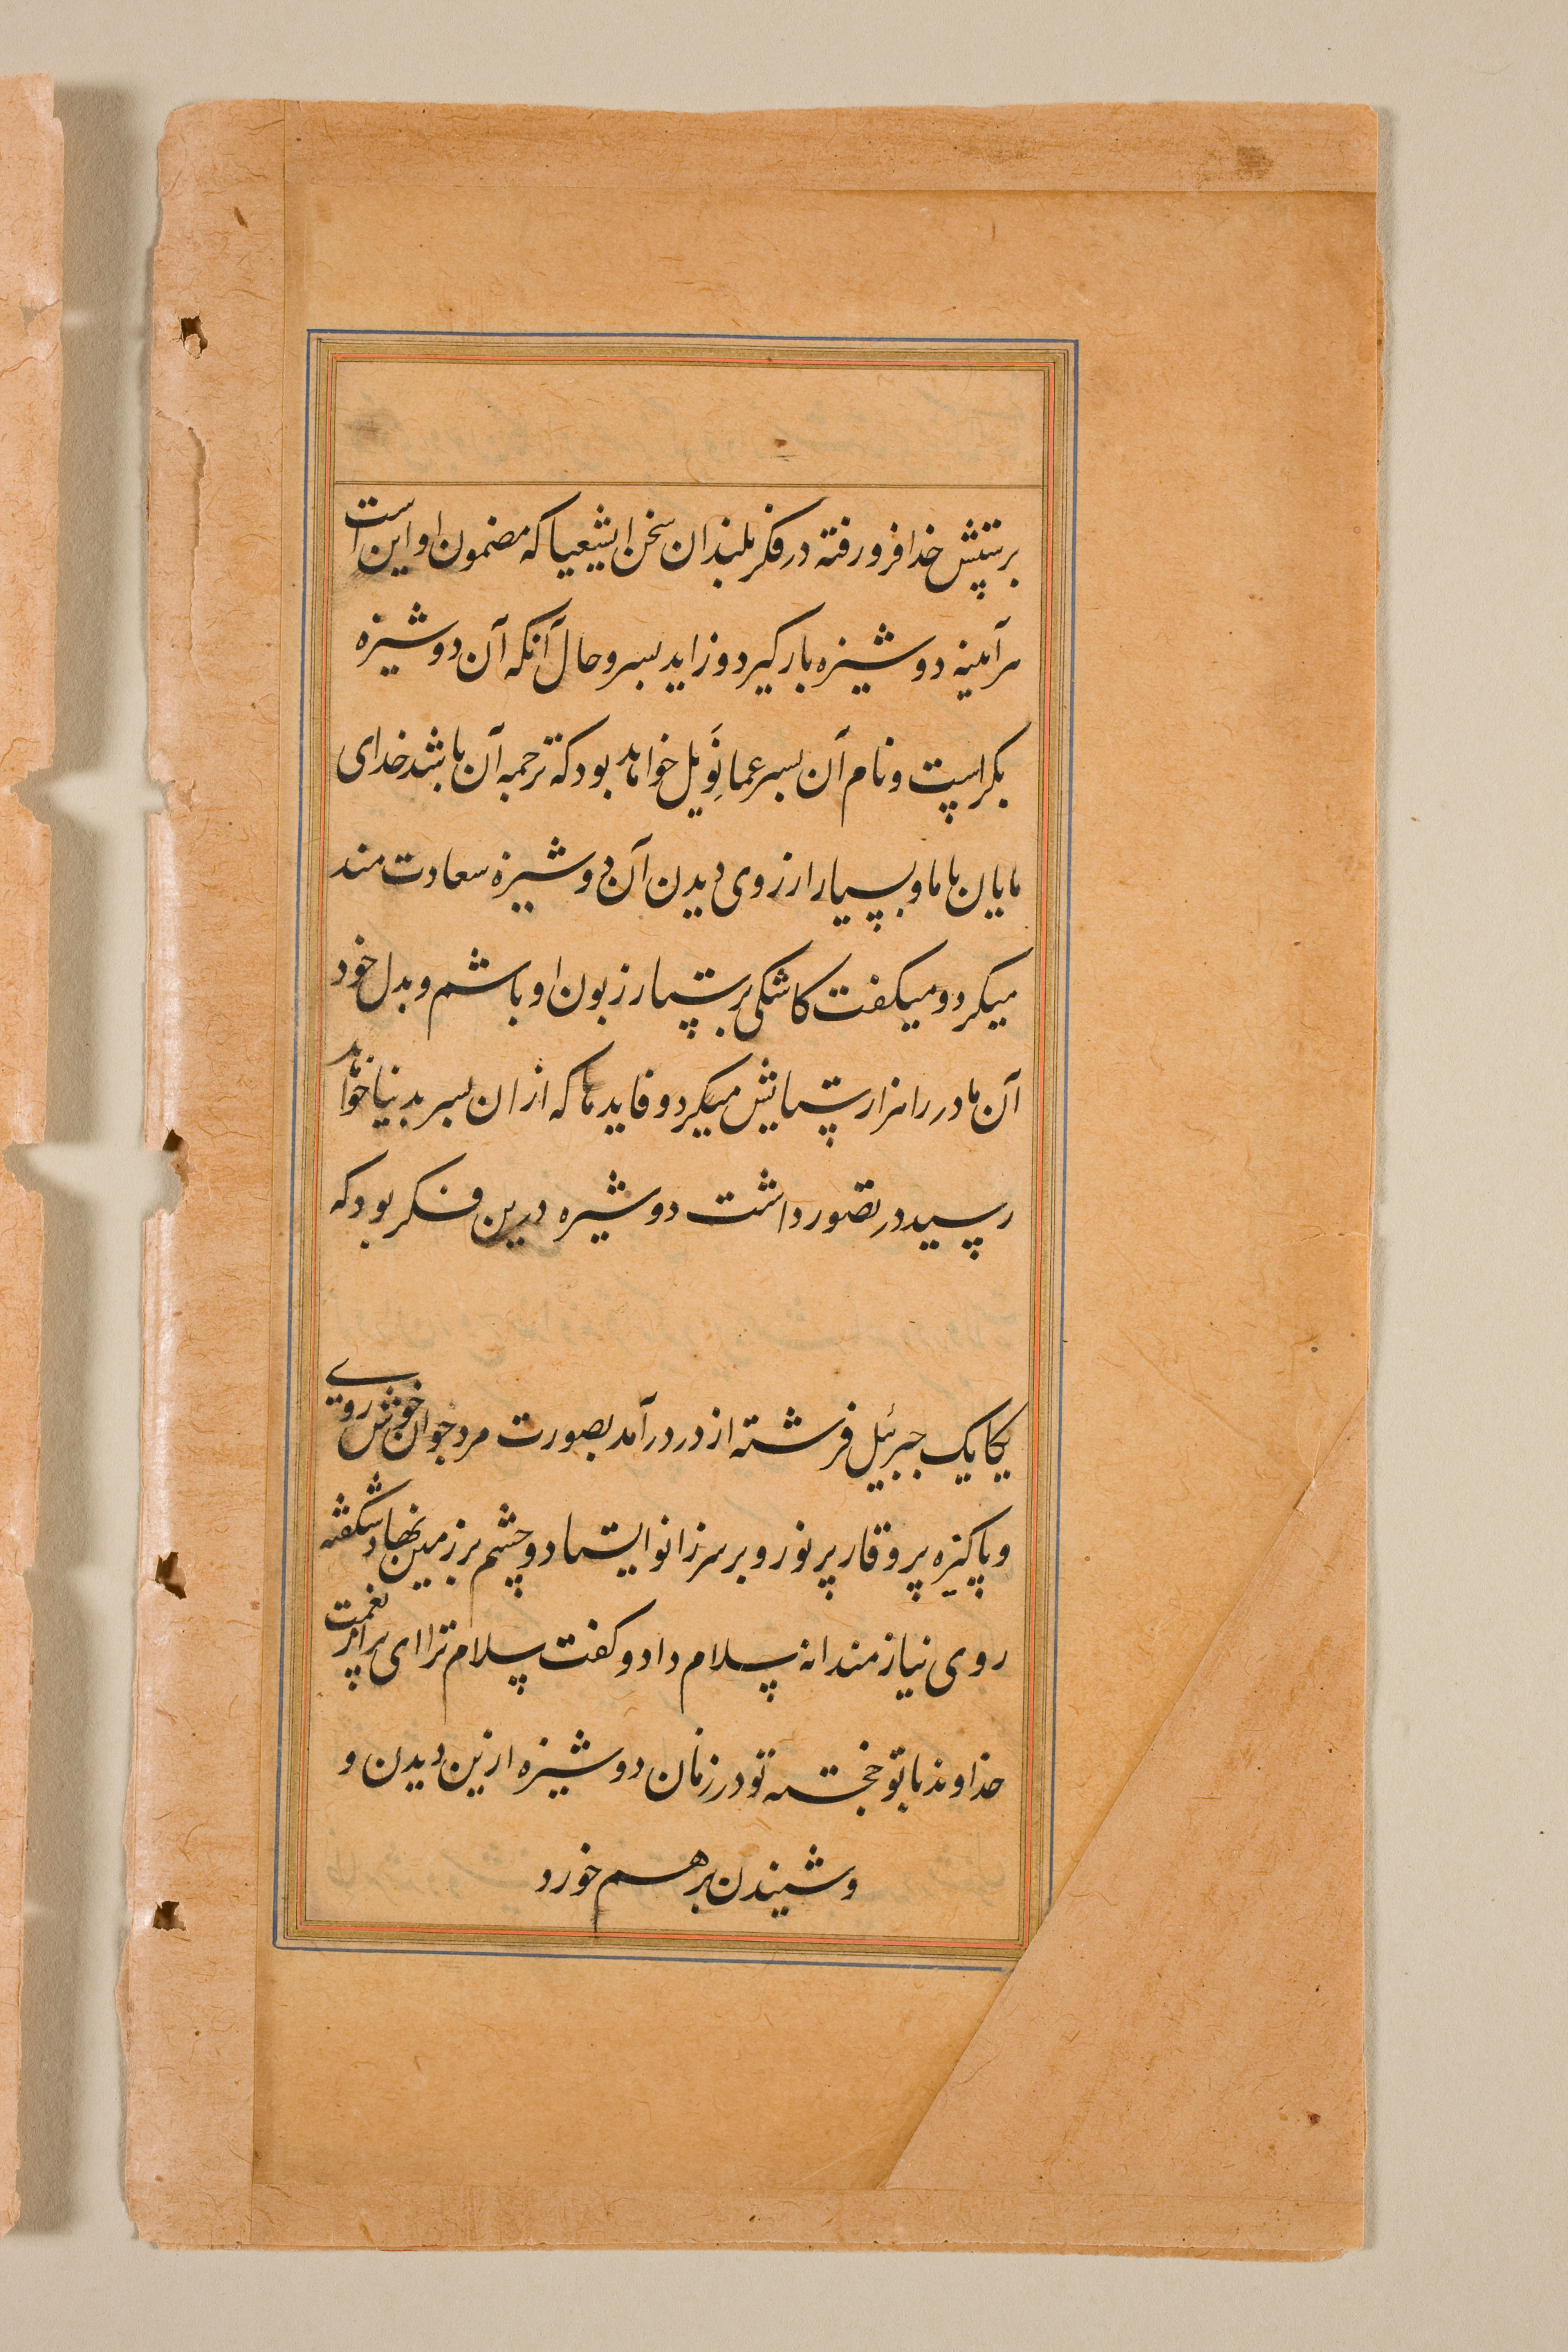 برستش خدا فرو رفته در فکر بلند ان سخن ایشعیا که مضمون او این است
هر آینه دوشیزه بار کیرد و زاید بسر و حال آنکه آن دوشیزه
بکر است و نام آن بسر عمانویل خواهد بود که ترجمه آن باشد خدای
مایان با ما و بسیار ارزوی دیدن آن دوشیزه سعادت مند
میکرد و میکفت کاشکی برستار زبون او باشم و بدل خود
آن مادر را هزار ستایش میکرد و فایدها که از ان بسر بدنیا خواهد
رسید در تصور داشت دوشیزه درین فکر بود که
یکایک جبرئیل فرشته از در در آمد بصورت مرد جوان خوش روی
و پاکیزه پر وقار پر نور و بر سر زانو ایستاد و چشم بر زمین نهاد شکفته
روی نیازمندانه سلام داد و کفت سلام ترا ای پر از نعمت
خداوند با تو خجسته تو در زنان دوشیزه ازین دیدن و
و شنیدن بر هم خورد